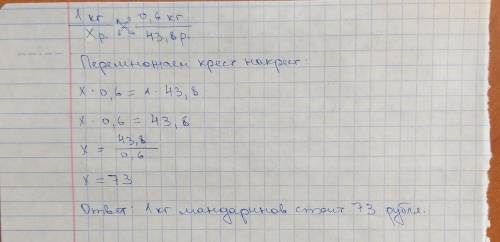 1 кг 0,6 кг
Xр 43,8р
Перемножаем крест накрест:
x · 0,6 = 1 · 43,8
x · 0,6 = 43,8
x = 43,8 / 0,6
x = 73
Ответ: 1кг мандаринов стоит 73 рубля.